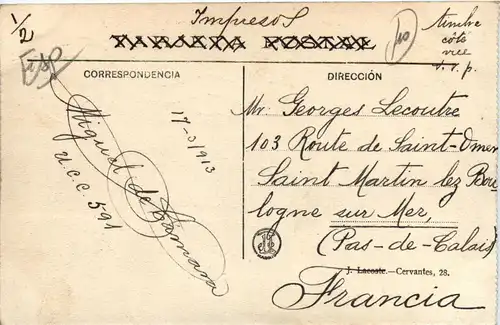 Impresos
TARJETA POSTAL
1/2
ESP
10
timbre
côté
vue
s.v.p.
CORRESPONDENCIA
17-3/913
Miguel de Zamora
U.C.C. 591
DIRECCIÓN
Mr. Georges Lecoutre
103 Route de Saint-Omer
Saint Martin lez Bou-
logne sur Mer,
(Pas-de-Calais)
J. Lacoste.—Cervantes, 28.
Francia